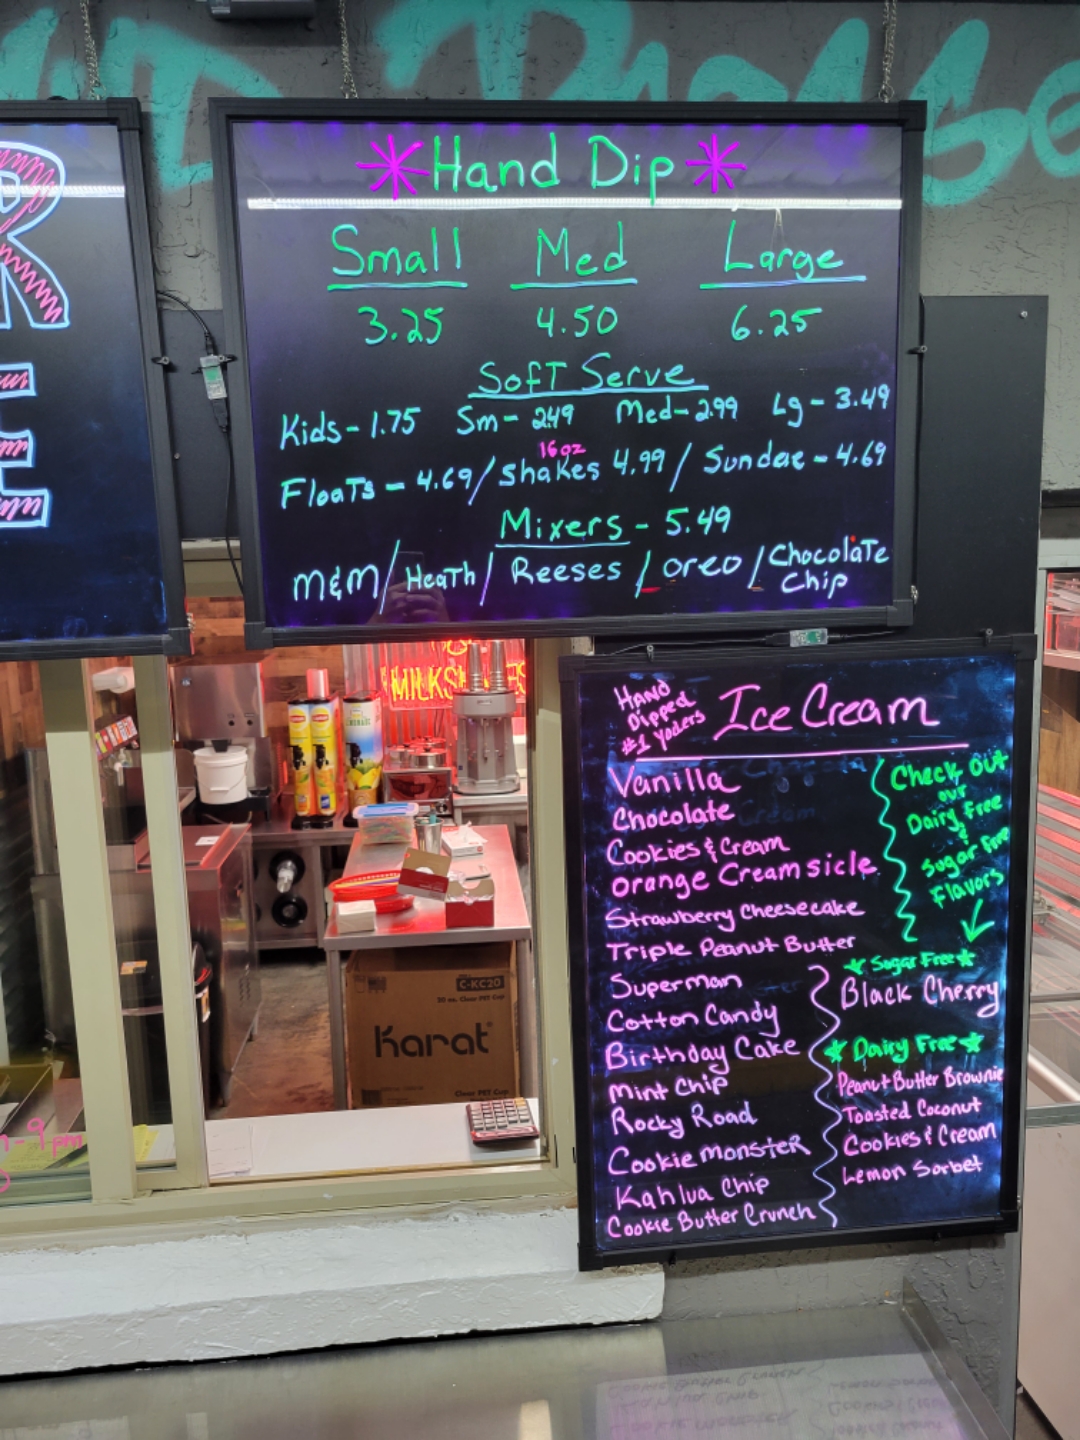 *Hand Dip*
Small Med Large
3.25 4.50 6.25
Soft Serve
Kids - 1.75 Sm - 2.49 Med - 2.99 Lg - 3.49
16oz
Floats - 4.69 / Shakes 4.99 / Sundae - 4.69
Mixers - 5.49
M&M / Heath / Reeses / Oreo / Chocolate
Chip
MILKSHAKES
Hand
Dipped
#1 Yoders
Ice Cream
Vanilla
Chocolate
Cookies & Cream
Orange Creamsicle
Strawberry Cheesecake
Triple Peanut Butter
Superman
Cotton Candy
Birthday Cake
Mint Chip
Rocky Road
Cookie Monster
Kahlua Chip
Cookie Butter Crunch
Check Out
our
Dairy Free
&
Sugar Free
Flavors
★ Sugar Free ★
Black Cherry
★ Dairy Free ★
Peanut Butter Brownie
Toasted Coconut
Cookies & Cream
Lemon Sorbet
C-KC20
20 oz. Clear PET Cup
Karat
Clear PET Cup
- 9 pm